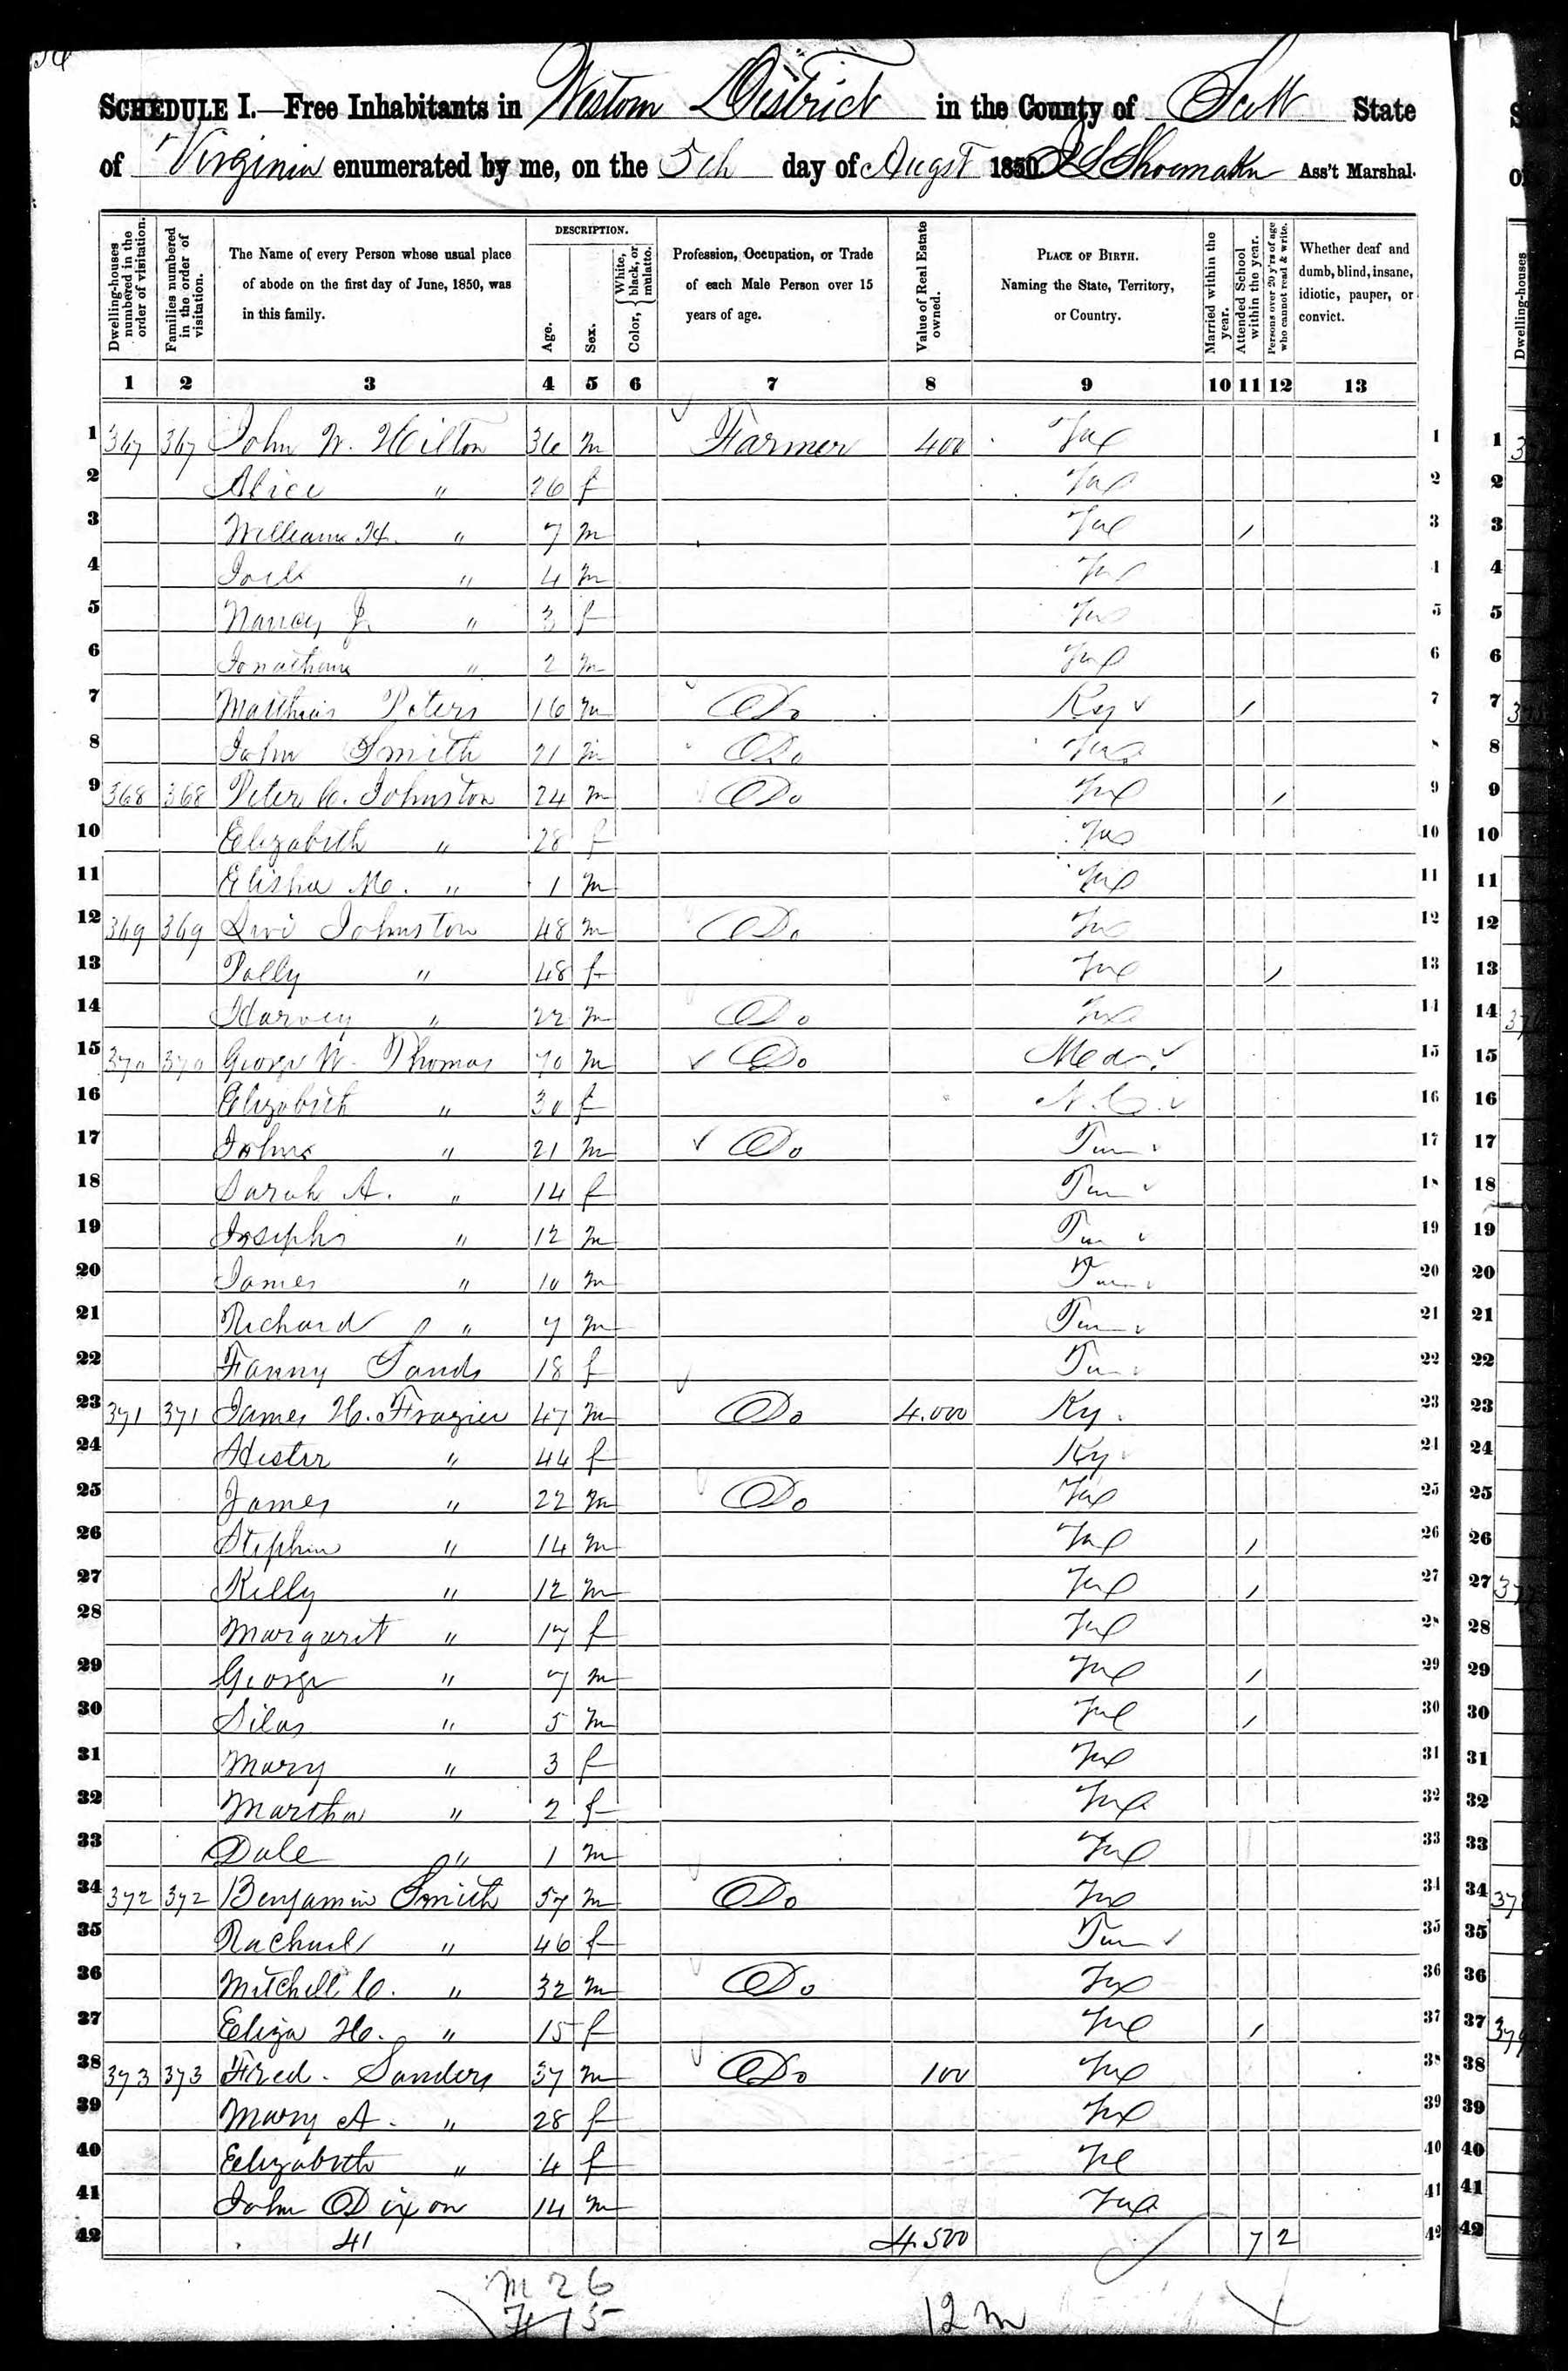 SCHEDULE I.—Free Inhabitants in Western District in the County of Scott State
of Virginia enumerated by me, on the 5th day of Augst 1850. Shoemaker Ass't Marshal.
Dwelling-houses numbered in the order of visitation.
Families numbered in the order of visitation.
The Name of every Person whose usual place of abode on the first day of June, 1850, was in this family.
DESCRIPTION.
Age.
Sex.
Color, { White, black, or mulatto.
Profession, Occupation, or Trade of each Male Person over 15 years of age.
Value of Real Estate owned.
PLACE OF BIRTH. Naming the State, Territory, or Country.
Married within the year.
Attended School within the year.
Persons over 20 y'rs of age who cannot read & write.
Whether deaf and dumb, blind, insane, idiotic, pauper, or convict.
1 2 3 4 5 6 7 8 9 10 11 12 13
1 367 367 John W. Hilton 36 m Farmer 400 Va 1
2 Alice " 26 f Va 2
3 William H. " 7 m Va / 3
4 Joel " 4 m Va 4
5 Nancy J. " 3 f Va 5
6 Jonathan " 2 m Va 6
7 Matthias Peters 16 m Do Ky / 7
8 John Smith 21 m Do Va 8
9 368 368 Peter C. Johnston 24 m Do Va / 9
10 Elizabeth " 28 f Va 10
11 Elisha M. " 1 m Va 11
12 369 369 Levi Johnston 48 m Do Va 12
13 Polly " 48 f Va / 13
14 Harvey " 22 m Do Va 14
15 370 370 George W. Thomas 70 m Do Med. 15
16 Elizabeth " 30 f N.C. 16
17 John " 21 m Do Ten 17
18 Sarah A. " 14 f Ten 18
19 Joseph " 12 m Ten 19
20 James " 10 m Ten 20
21 Richard " 7 m Ten 21
22 Fanny Sands 18 f Ten 22
23 371 371 James H. Frazier 47 m Do 4.000 Ky 23
24 Hester " 44 f Ky 24
25 James " 22 m Do Va 25
26 Stephen " 14 m Va / 26
27 Kelly " 12 m Va / 27
28 Margaret " 17 f Va 28
29 George " 7 m Va / 29
30 Silas " 5 m Va / 30
31 Mary " 3 f Va 31
32 Martha " 2 f Va 32
33 Dale " 1 m Va 33
34 372 372 Benjamin Smith 57 m Do Va 34
35 Rachael " 46 f Ten 35
36 Mitchell C. " 32 m Do Va 36
37 Eliza H. " 15 f Va / 37
38 373 373 Fred. Sanders 37 m Do 100 Va 38
39 Mary A. " 28 f Va 39
40 Elizabeth " 4 f Va 40
41 John Dixon 14 m Va 41
42 41 4.500 7 2 42
M 26
F 15
12 m